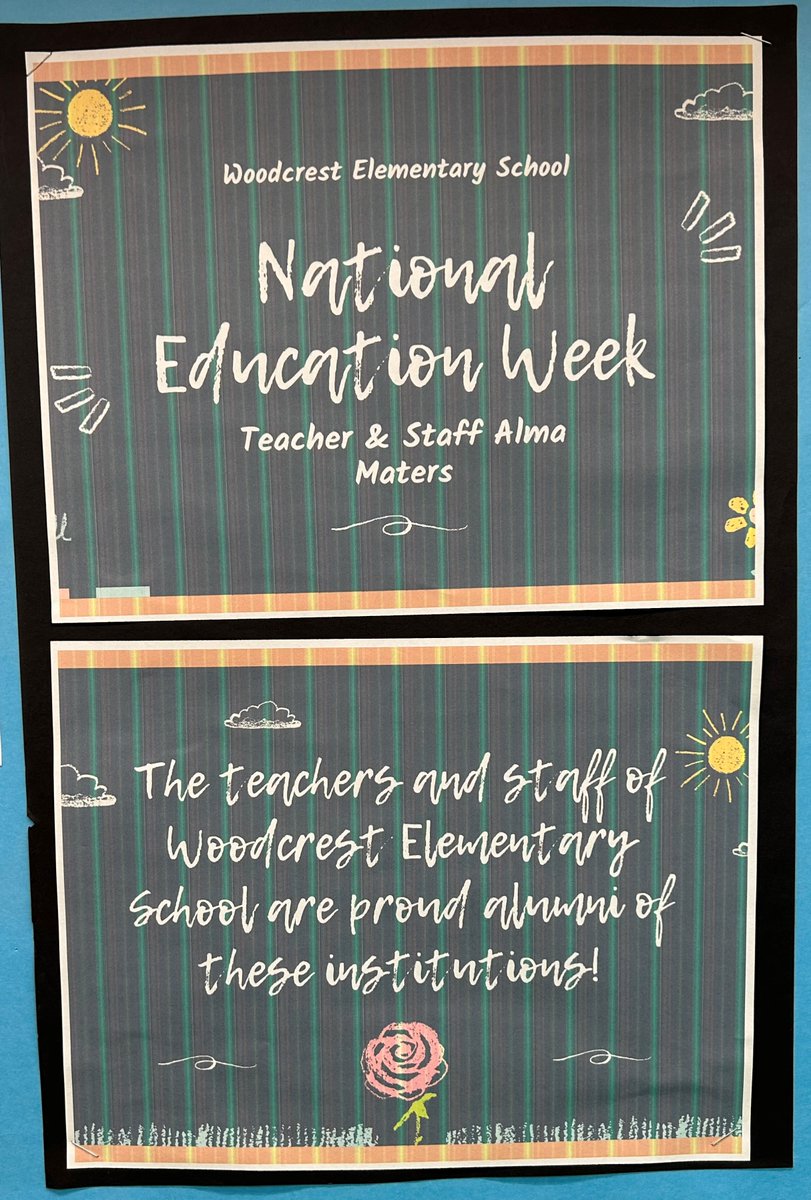 Woodcrest Elementary School
National
Education Week
Teacher & Staff Alma
Maters
The teachers and staff of
Woodcrest Elementary
School are proud alumni of
these institutions!